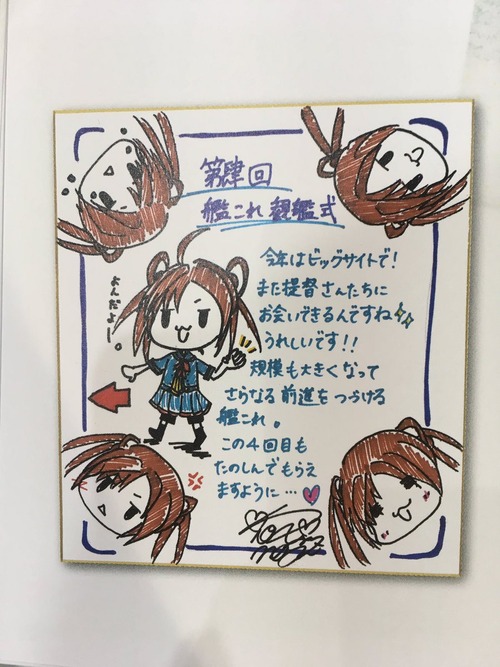 第肆回
艦これ観艦式
よんだよー。
今年はビッグサイトで！
また提督さんたちに
お会いできるんですね
うれしいです！！
規模も大きくなって
さらなる前進をつづける
艦これ。
この4回目も
たのしんでもらえ
ますように…